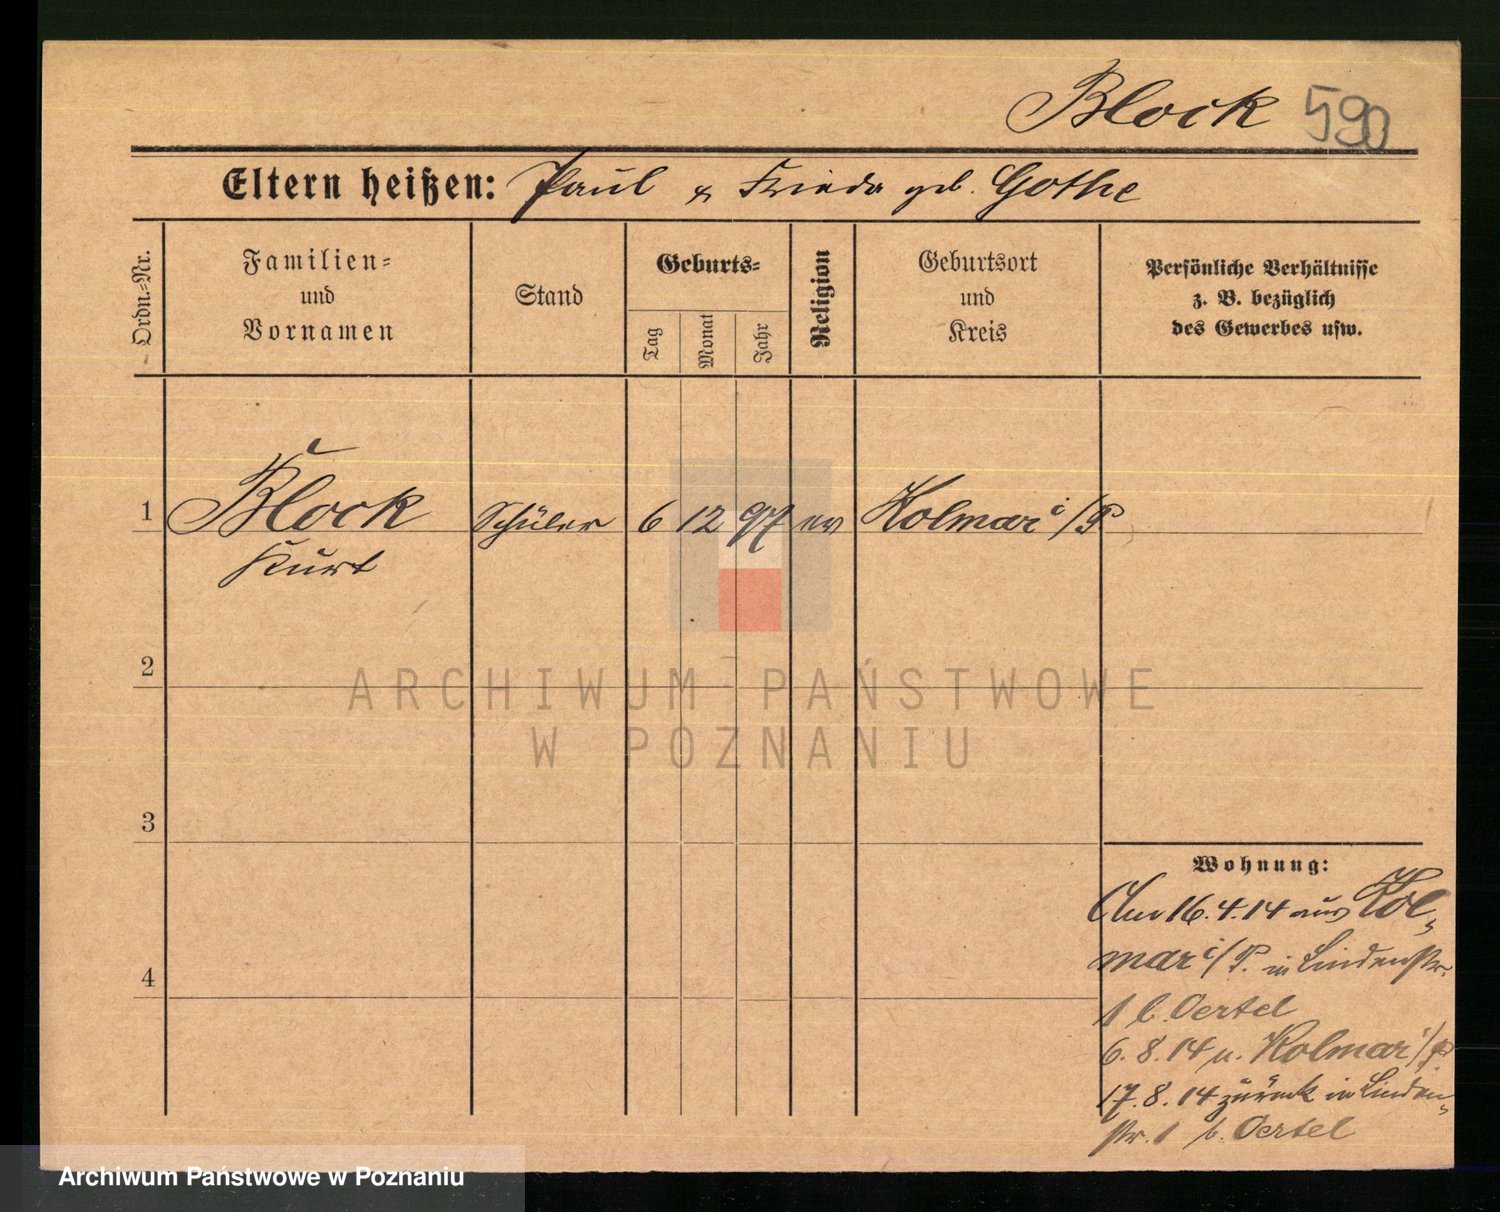 Block 590
Eltern heißen: Paul & Frieda geb. Gothe
Ordn.-Nr.
Familien-
und
Vornamen
Stand
Geburts-
Tag
Monat
Jahr
Religion
Geburtsort
und
Kreis
Persönliche Verhältnisse
z. B. bezüglich
des Gewerbes usw.
1 Block Schüler 6 12 97 ev Kolmar i/P
Kurt
2
ARCHIWUM PAŃSTWOWE
W POZNANIU
3
Wohnung:
Am 16.4.14 aus Kol-
mar i/P. in Lindenstr.
4
1 b. Oertel
6.8.14 n. Kolmar i/P
17.8.14 zurück in Linden-
str. 1 b. Oertel
Archiwum Państwowe w Poznaniu